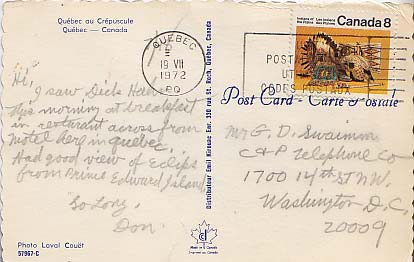 Québec au Crépuscule
Québec — Canada
Hi,
I saw Dick
this morning at breakfast
in resturant across from
motel here in quebec.
Had good view of Eclips
from Prince Edward Island
So Long,
Don.
Photo Laval Couët
57967-C
Distributeur Emil Kirouac Enr. 330 rue St. Roch, Québec, Canada
Made in Canada
QUEBEC
19 VII
1972
PQ
POST
UT
CODES POSTAUX
Indians of the Plains
Les Indiens des Plaines
Canada 8
Post Card - Carte Postale
Mr G. D. Swaimm
C&P Telephone Co
1700 14th ST N.W.
Washington D.C.
20009